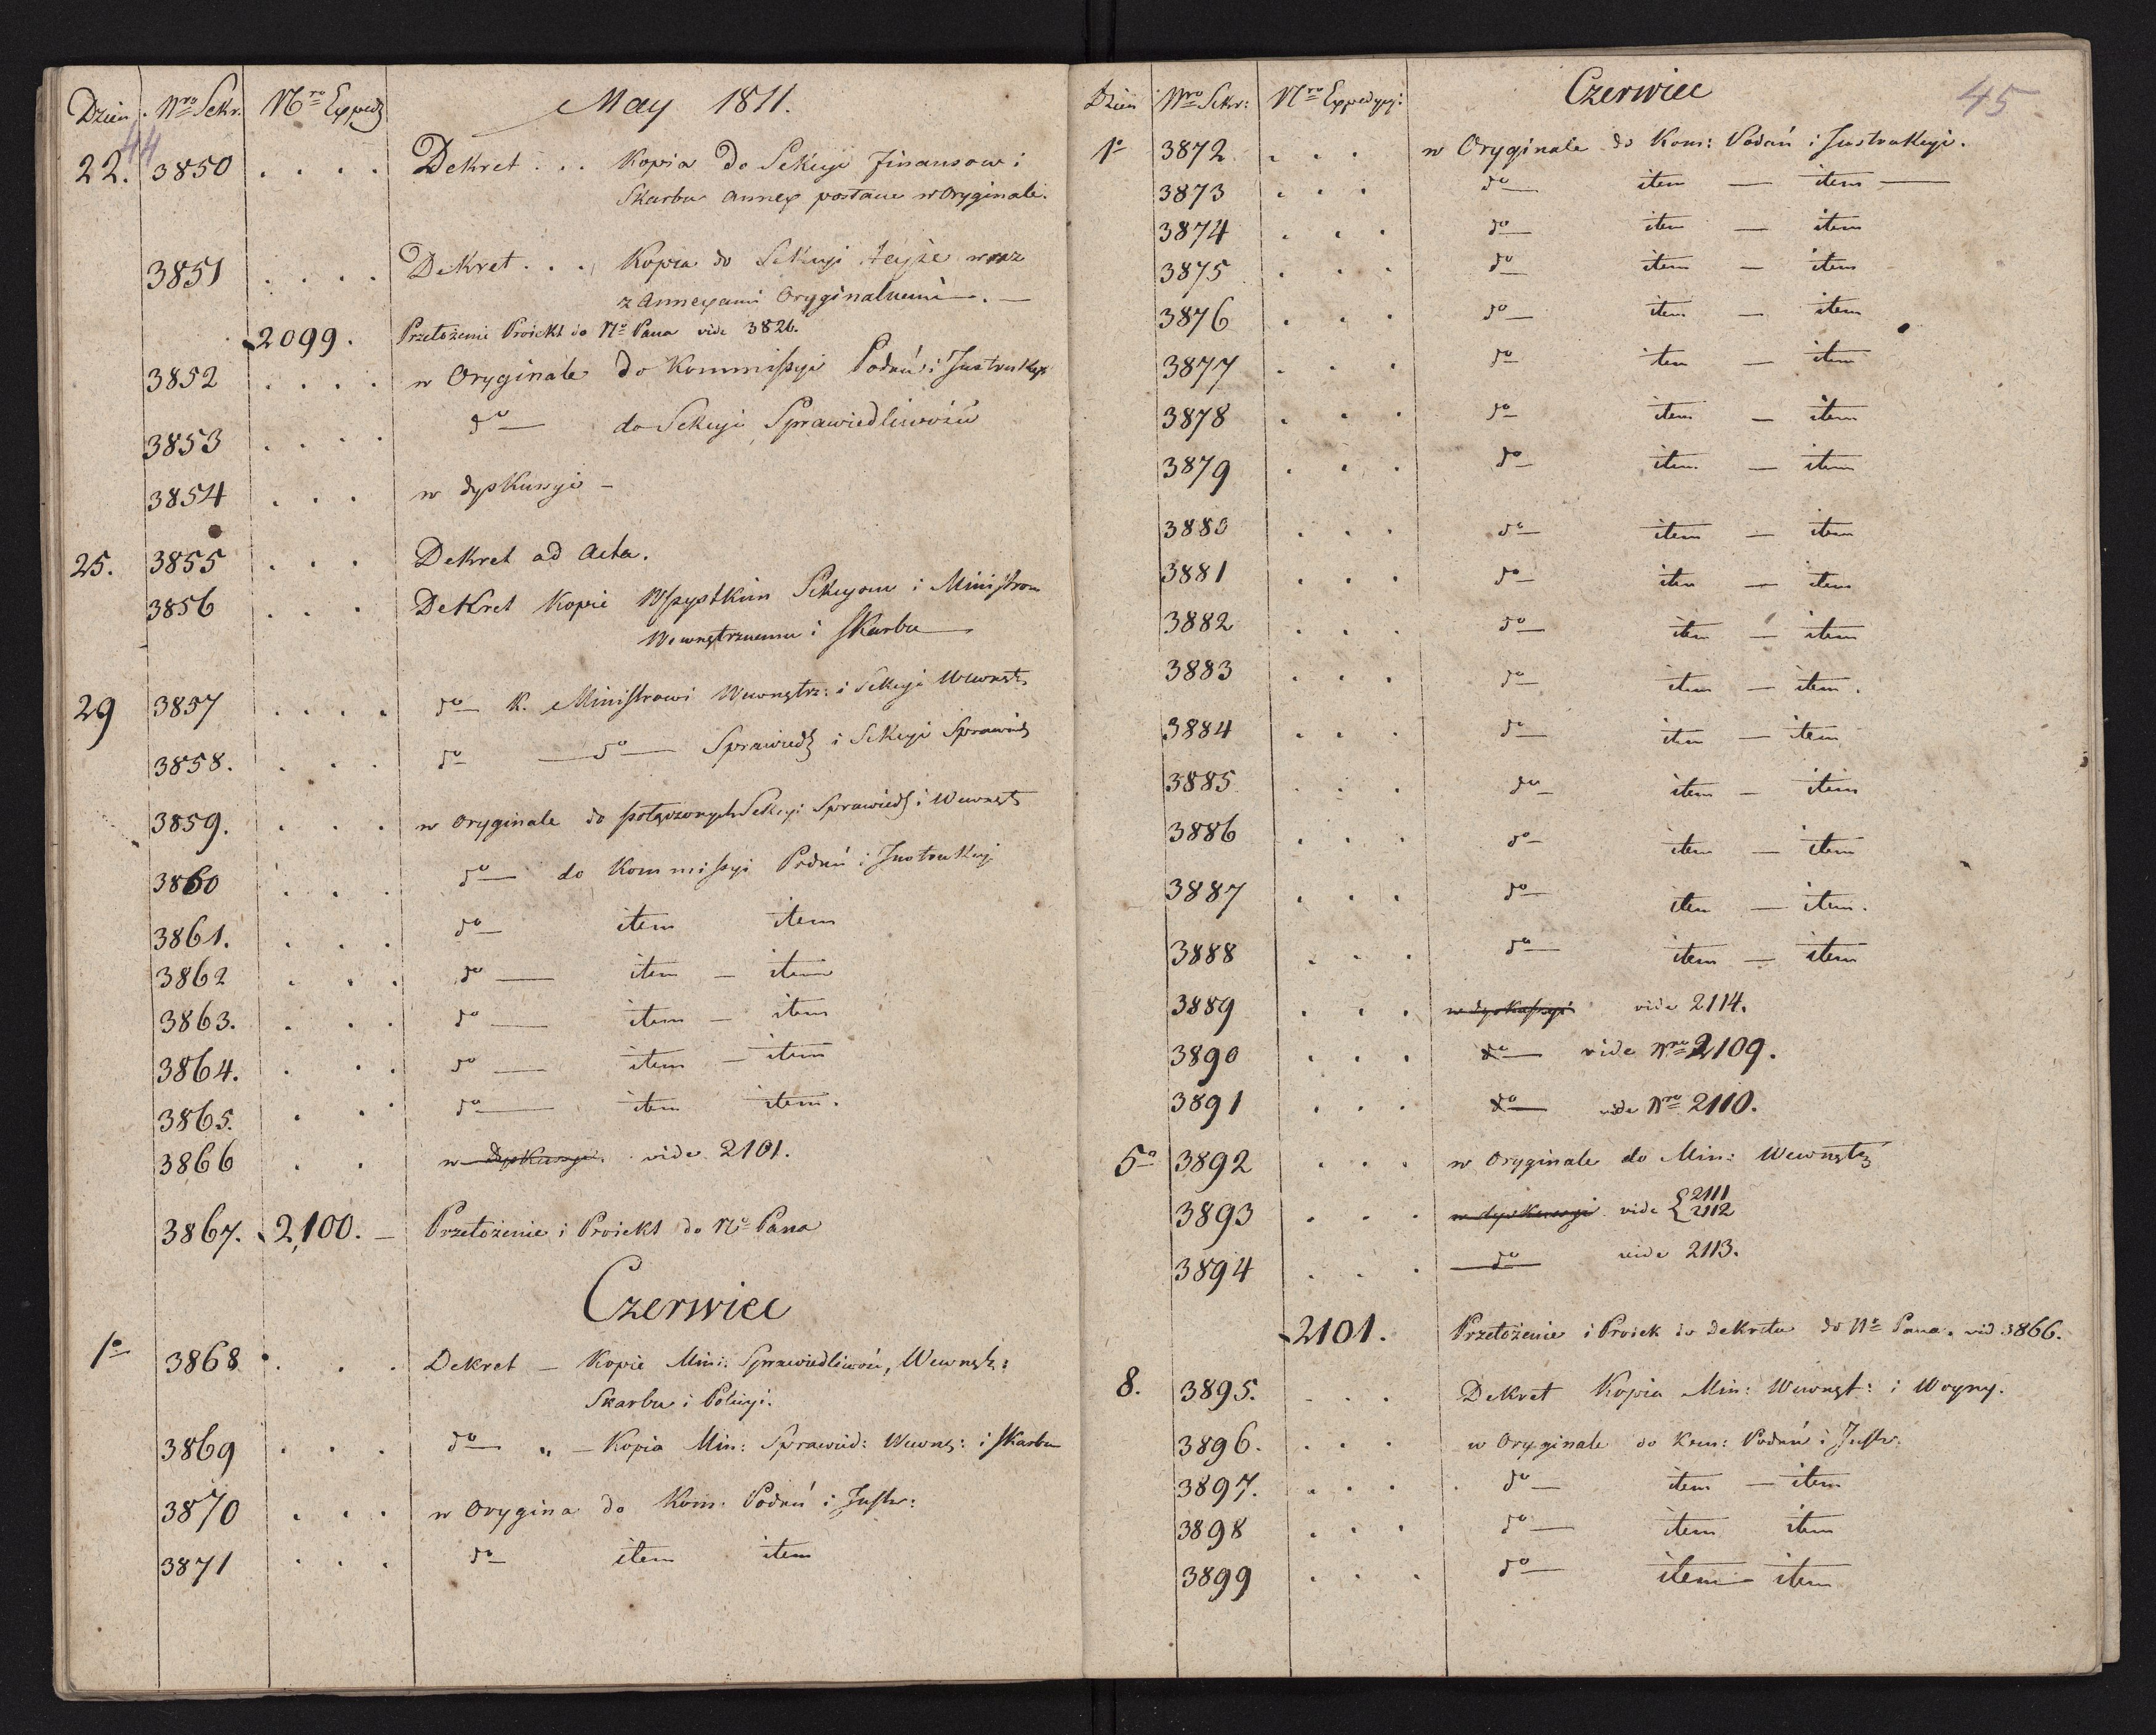 Dzien. Nro Sekr. Nro Exped May 1811.
44
22. 3850 . . . . Dekret . . . Kopia do Sekcyi Finansow i
Skarbu annex postane w Oryginale.
3851 . . . . Dekret . . . Kopia do Sekcyi teyże wraz
z Annexami Oryginalnemi. —
2099. Przełożenie Proiekt do No Pana vide 3826.
3852 . . . . w Oryginale do Kommissyi Podań i Instrukcyi
3853 . . . . do — do Sekcyi Sprawiedliwości
3854 . . . w dyskussyi –
25. 3855 . . . Dekret ad Acta.
3856 . . . Dekret Kopie Wszystkim Sekcyom i Ministrom
Wewnętrznemu i Skarbu —
29 3857 . . . . do — K. Ministrowi Wewnętrz: i Sekcyi Wewnęt
3858. . . . do — do — Sprawied i Sekcyi Sprawied
3859. . . . w Oryginale do połączonych Sekcyi Sprawied i Wewnęt
3860 . . . do — do Kommissyi Podań i Instrukcyi
3861. . . . do — item item
3862 . . . do — item — item
3863. . . . do — item — item
3864. . . . do — item — item
3865. . . . do — item item.
3866 . . w dyskussyi. vide 2101.
3867. 2,100. — Przełożenie i Proiekt do No Pana
Czerwiec
1o 3868 . . . Dekret — Kopie Min: Sprawiedliwości, Wewnętz:
Skarbu i Policyi.
3869 . . . do — „ — Kopia Min: Sprawied: Wewnę: i Skarbu
3870 . . . w Orygina do Kom: Podań i Instr:
3871 . . . do — item item
Dzien Nro Sekr: Nro Expedycyi: Czerwiec 45
1o 3872 . . . w Oryginale do Kom: Podań i Instrukcyi.
3873 . . . do — item — item —
3874 . . . do — item — item
3875 . . . do — item — item
3876 . . . do — item — item
3877 . . . do — item — item
3878 . . . do — item — item
3879 . . . do — item — item
3880 . . . do — item — item
3881 . . . do — item — item
3882 . . . do — item — item
3883 . . . do — item — item.
3884 . . . do — item — item
3885 . . . do — item — item
3886 . . . do — item — item
3887 . . . do — item — item.
3888 . . . do — item — item
3889 . . . w dyskussyi vide 2114.
3890 . . . do — vide Nro 2109.
3891 . . . do — vide Nro 2110.
5o 3892 . . . w Oryginale do Min: Wewnętz
3893 . . . w dyskussyi vide { 2111
2112
3894 . . . do vide 2113.
2101. Przełożenie i Proiek do dekretu do No Pana. vid 3866.
8. 3895. . . . Dekret Kopia Min: Wewnęt: i Woyny.
3896. . . . w Oryginale do Kom: Podań i Instr.
3897. . . . do — item — item
3898 . . . do — item item
3899 . . . do — item — item